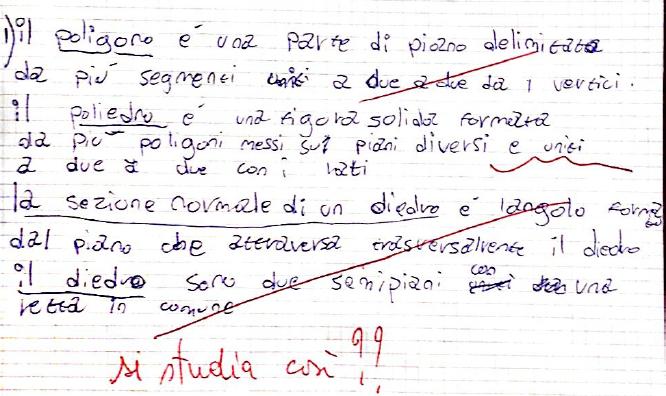 1) il poligono é una parte di piano delimitata
da piú segmenti uniti a due a due da i vertici.
il poliedro é una figura solida formata
da piú poligoni messi sui piani diversi e uniti
a due a due con i lati
la sezione normale di un diedro é langolo formato
dal piano che attraversa trasversalmente il diedro
il diedro sono due semipiani con una
retta in comune
si studia così ?!?!